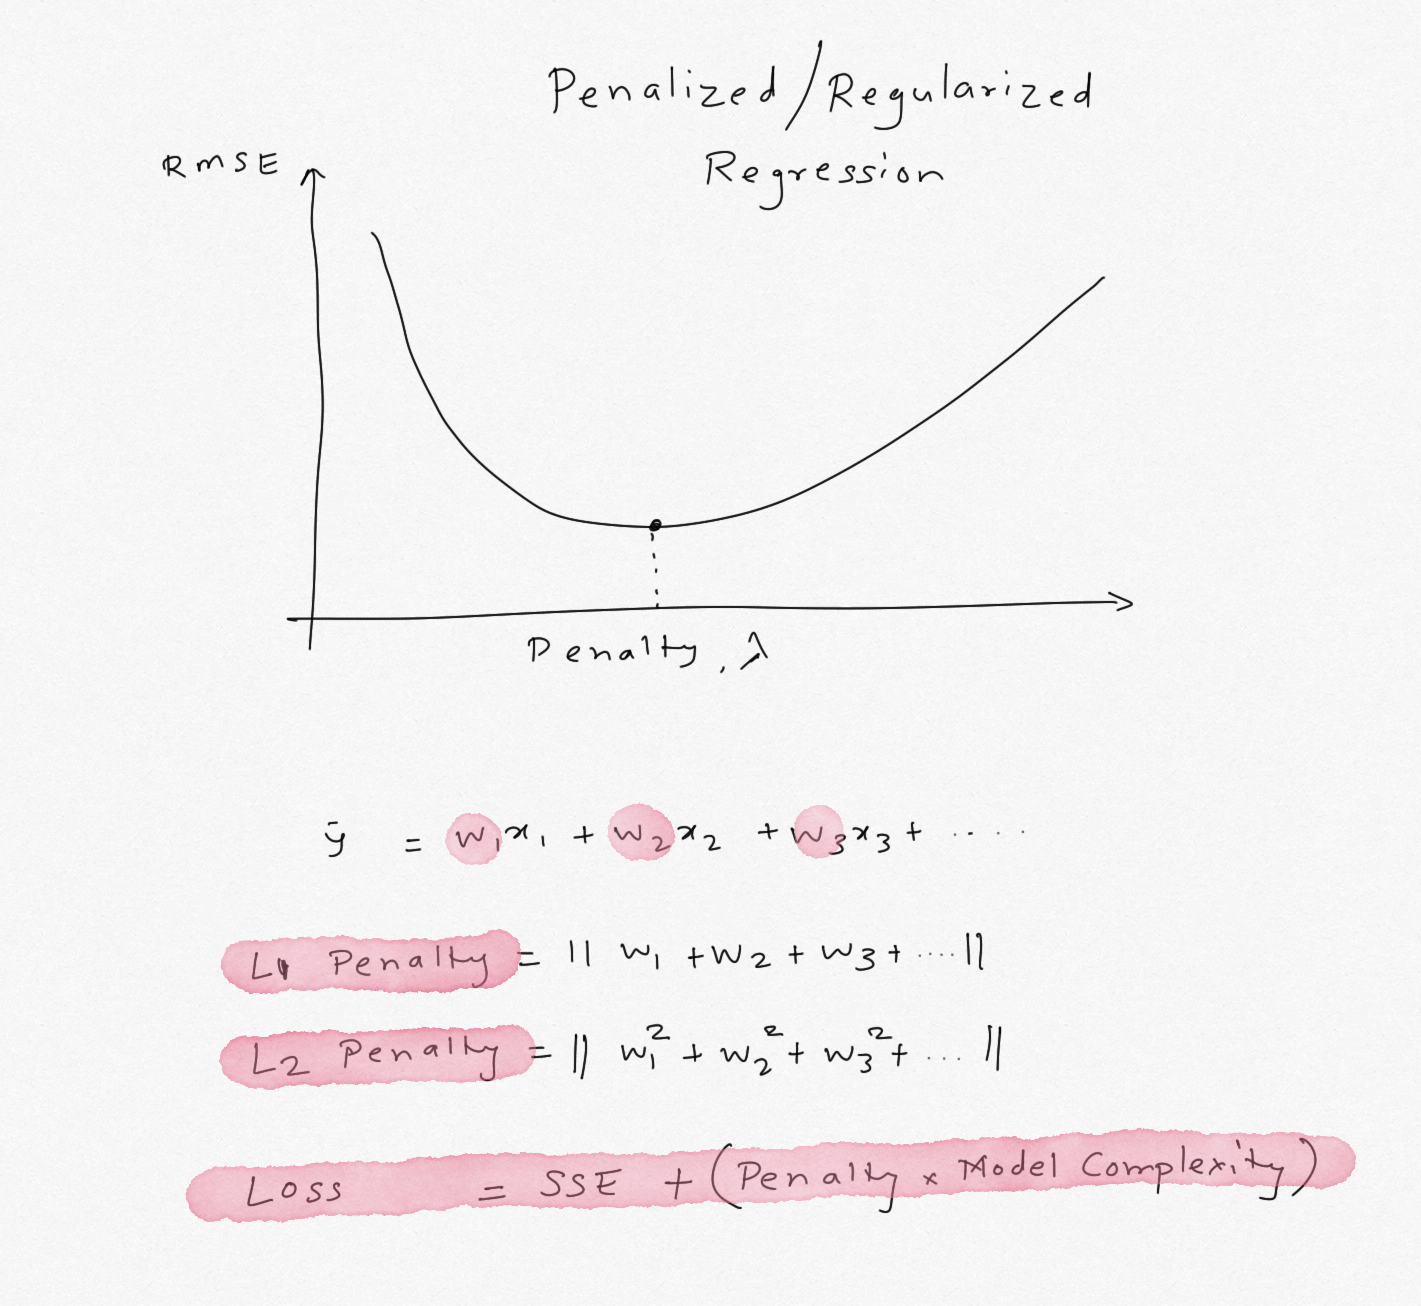 Penalized/Regularized
Regression
RMSE
Penalty, λ
ȳ = w₁x₁ + w₂x₂ + w₃x₃ + ....
L1 Penalty = || w₁ + w₂ + w₃ + .... ||
L2 Penalty = || w₁² + w₂² + w₃² + .... ||
Loss = SSE + (Penalty × Model Complexity)